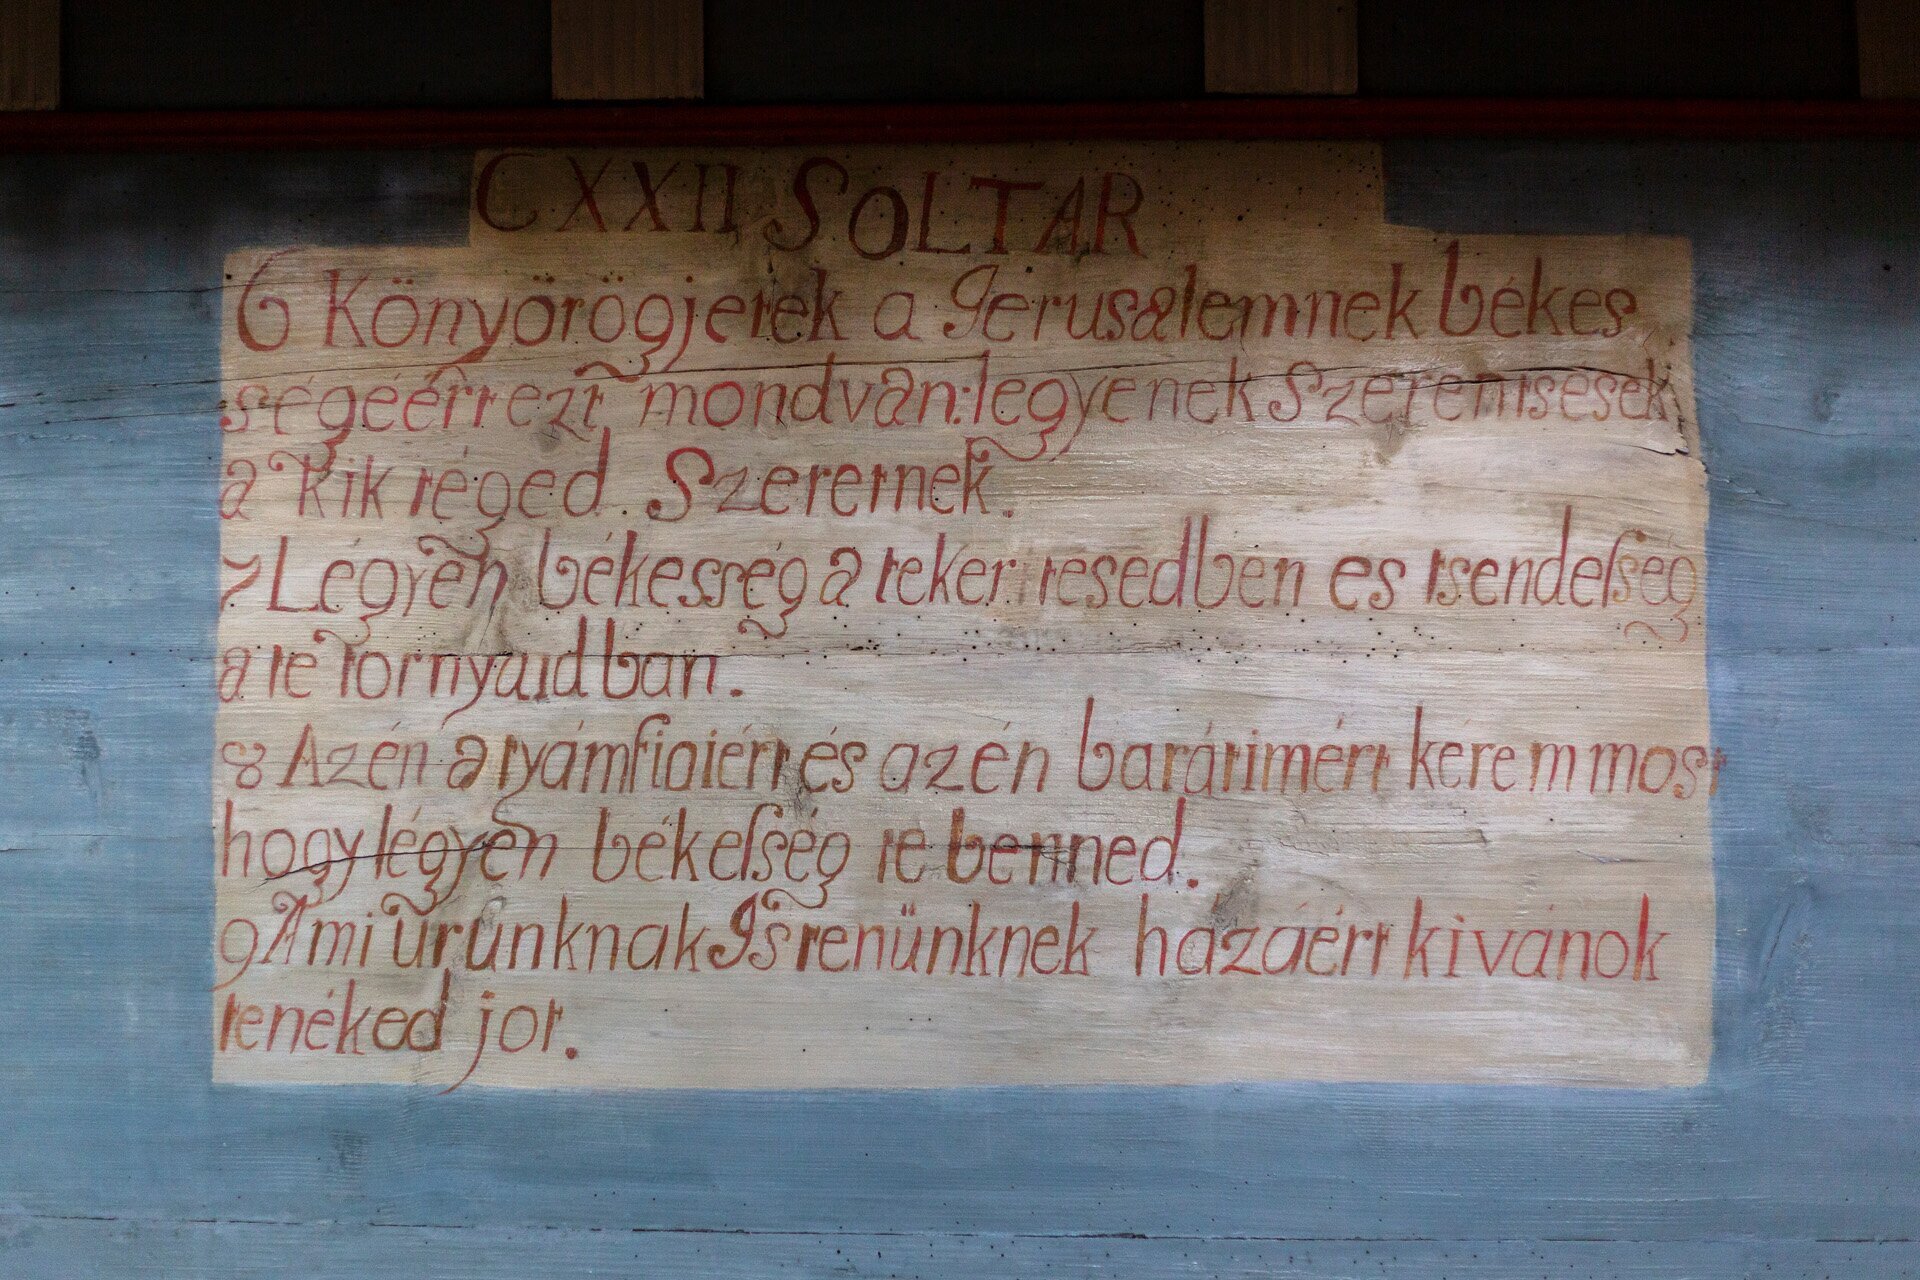 CXXII SOLTAR
6 Könyörögjetek a Jerusalemnek bekes
ségéértt ezt mondván: legyenek Szerentsések
a kik téged. Szeretnek.
7 Légyen békesség a te kertésedben es tsendeſség
a te tornyaidban.
8 Azén atyámfiaiértt és azén barátimértt kerem most
hogy légyen békeſség te benned.
9 Ami Urunknak Istenünknek házáértt kivánok
tenéked jot.